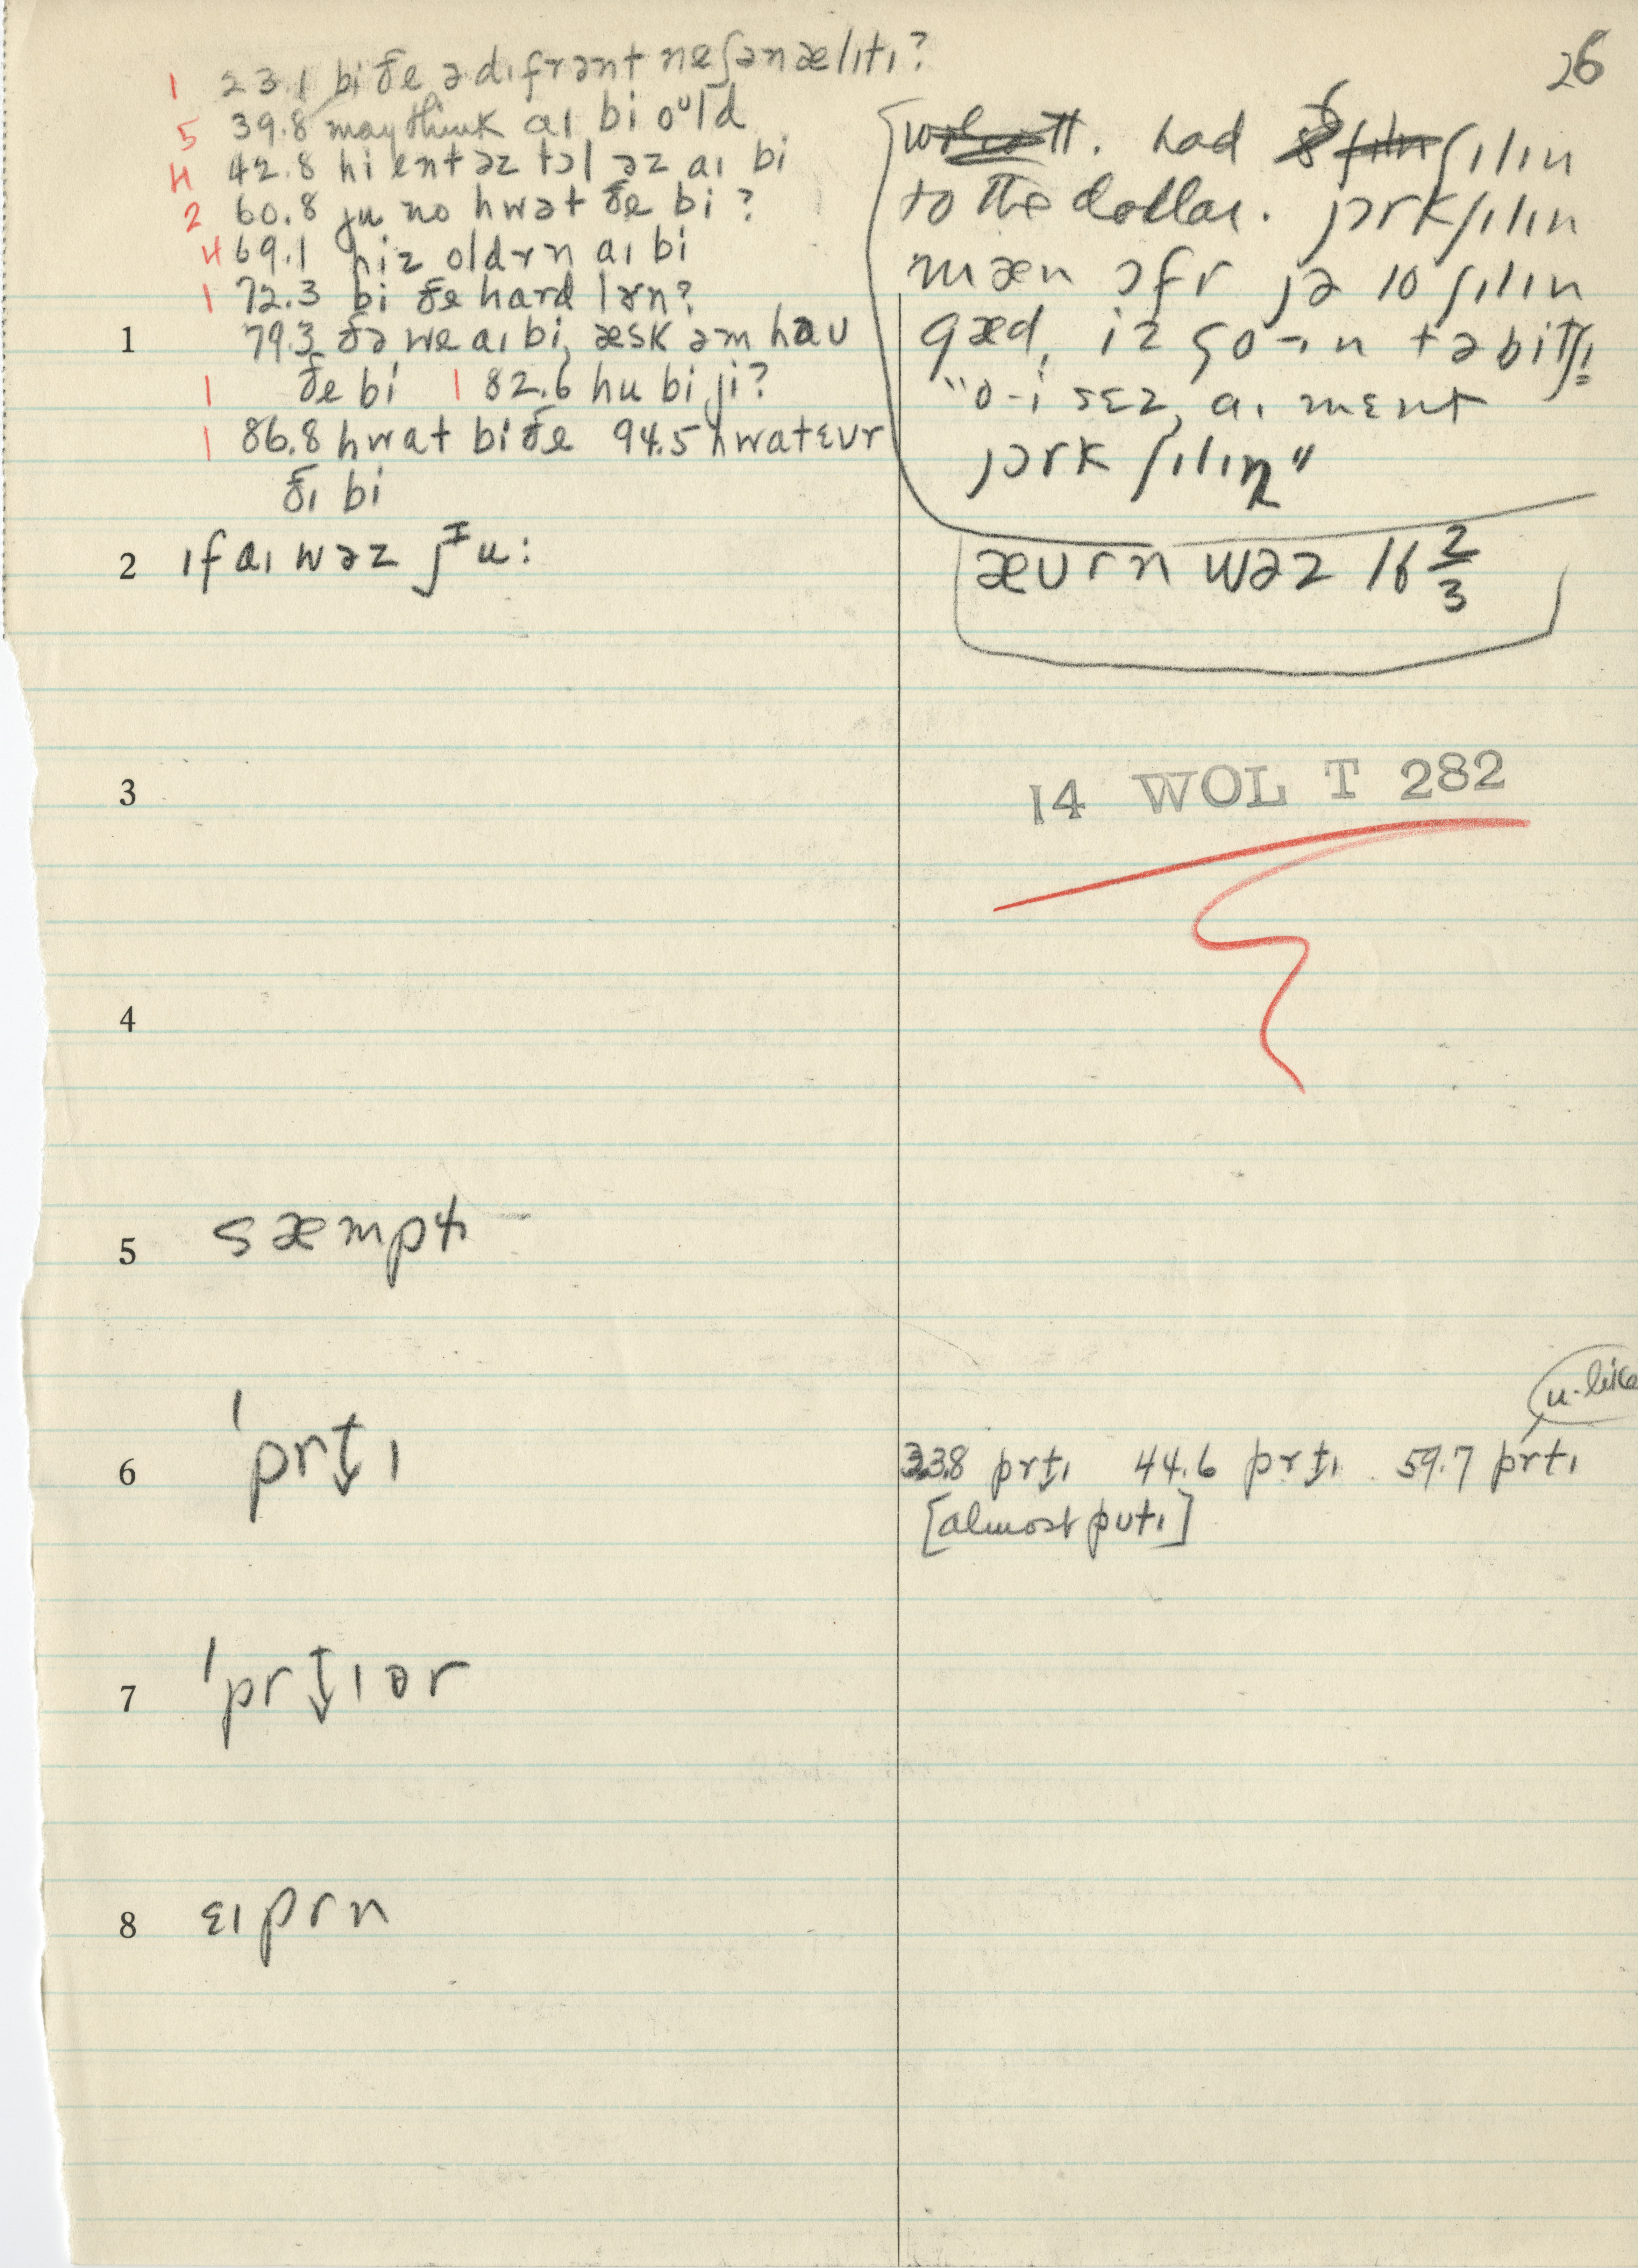 26
1 23.1 bi ðe ə dɪfrənt neʃənælɪtɪ?
5 39.8 may think aɪ bi oᵘld
4 42.8 hi ent əz tɔl əz aɪ bi
2 60.8 ju no hwət ðe bi?
4 69.1 hiz oldrn aɪ bi
1 72.3 bi ðe hard lɜrn?
1 79.3 ðə we aɪ bi, æsk əm hau
1 ðe bi 1 82.6 hu bi ji?
1 86.8 hwat bi ðe 94.5 hwatɛvr
ðɪ bi
had 6 ʃɪlɪn
to the dollar. jɔrk ʃɪlɪn
mæn ɔfr jə 10 ʃɪlɪn
gæd, iz go-ɪn tə bit ji
"o- i sɛz, aɪ mɛnt
jɔrk ʃɪlɪŋ"
ævrn wəz 16 2/3
2 ɪf aɪ wəz jᴵu:
3
14 WOL T 282
4
5 sæmptɪ
u-like
6 ˈprt̬ɪ
33.8 prt̬ɪ 44.6 prt̬ɪ 59.7 prtɪ
[almost putɪ]
7 ˈprt̬ɪər
8 ɛɪprn